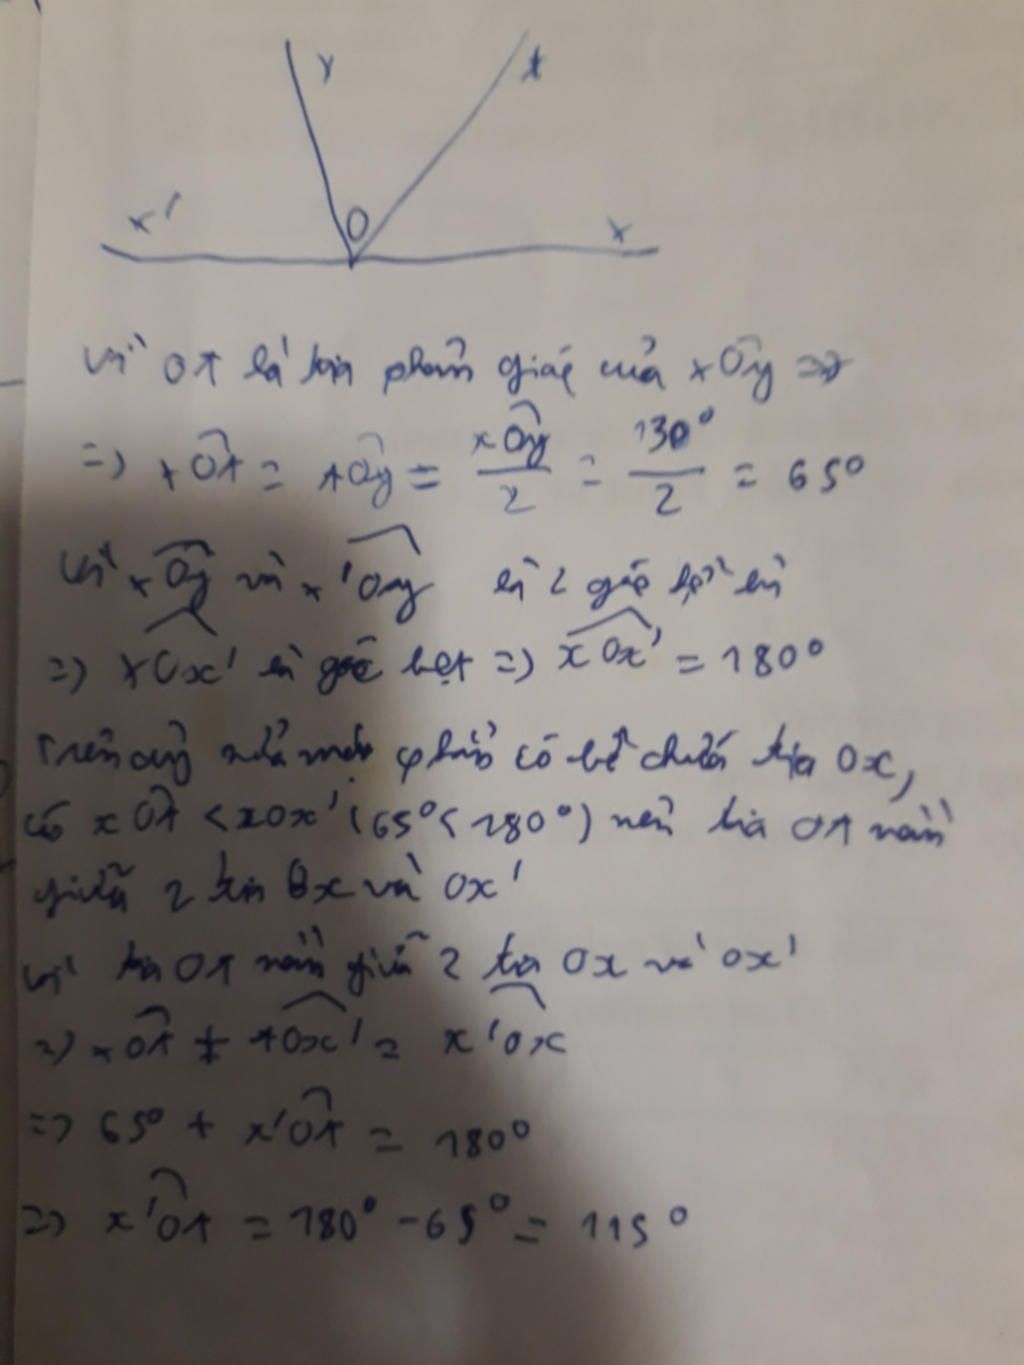 y t
x' O x
Vì Ot là tia phân giác của xÔy =>
=> xÔt = tÔy = xÔy/2 = 130°/2 = 65°
Vì xÔy và x'Ôy là 2 góc kề bù
=> xOx' là góc bẹt => xOx' = 180°
Trên cùng nửa mặt phẳng có bờ chứa tia Ox,
có xÔt < xOx' (65° < 180°) nên tia Ot nằm
giữa 2 tia Ox và Ox'
Vì tia Ot nằm giữa 2 tia Ox và Ox'
=> xÔt + tÔx' = x'Ôx
=> 65° + x'Ôt = 180°
=> x'Ôt = 180° - 65° = 115°